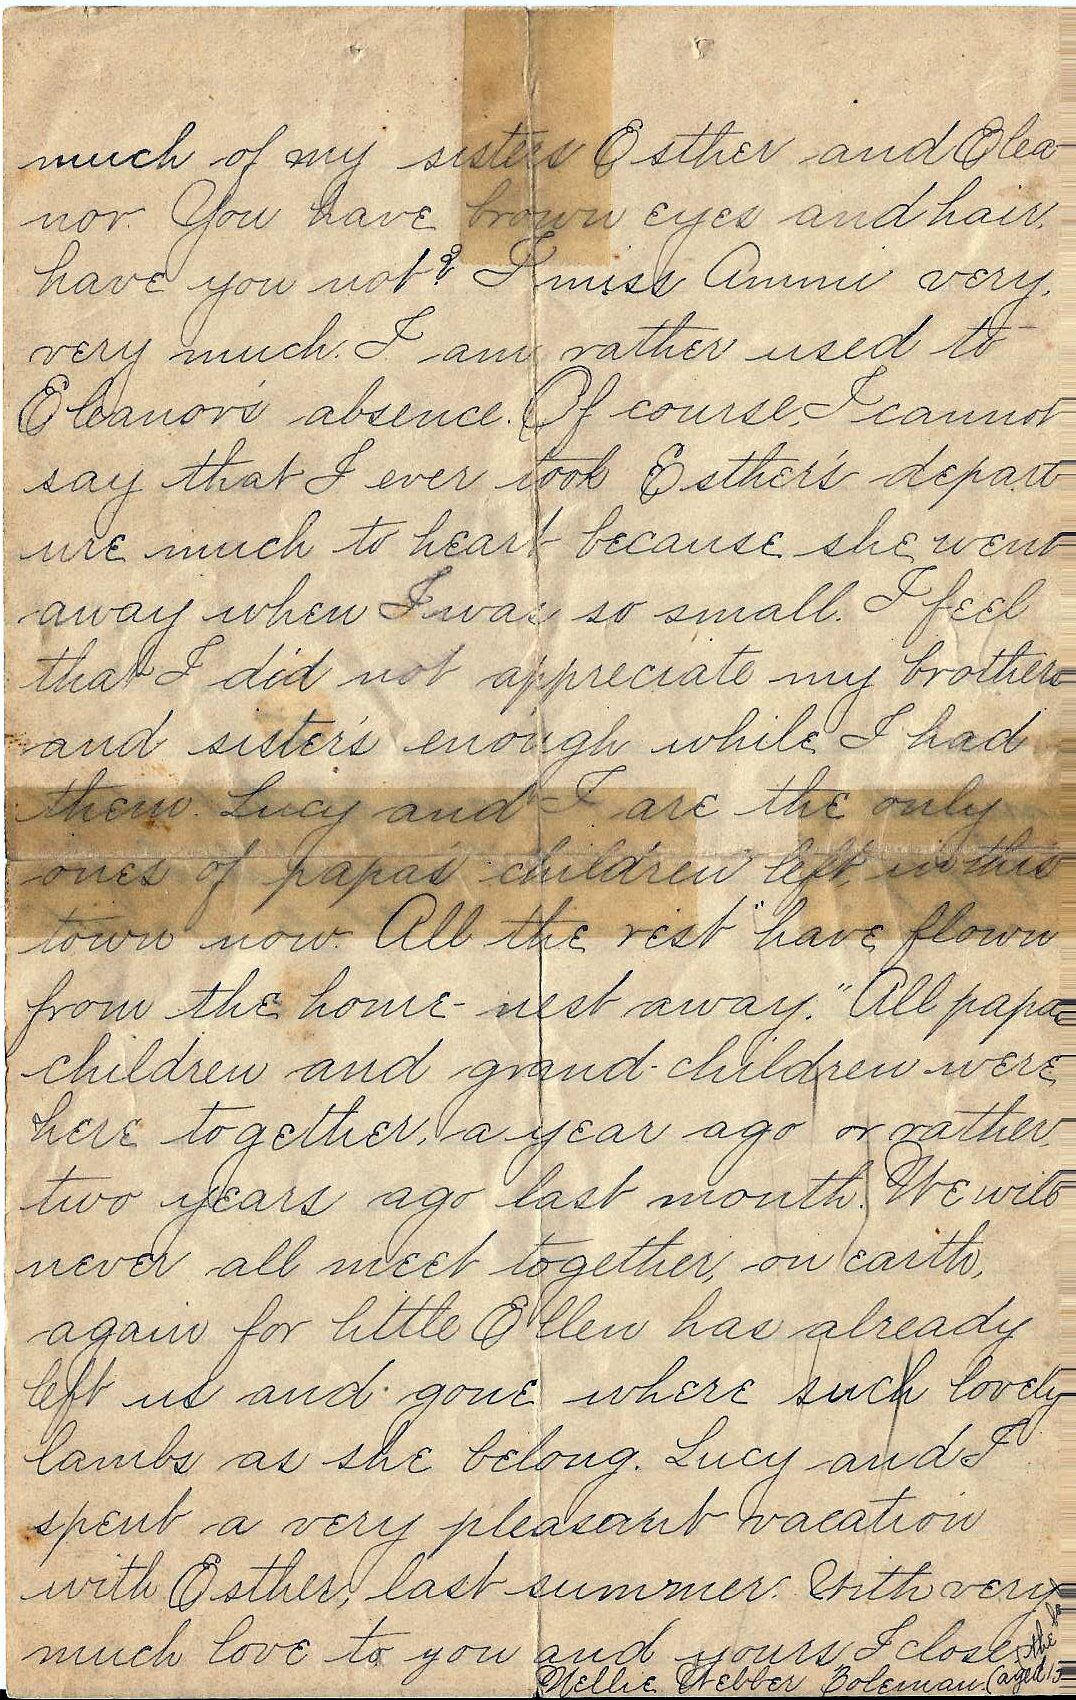 much of my sisters Esther and Elea-
nor. You have brown eyes and hair,
have you not? I miss Ammi very,
very much. I am rather used to
Eleanor's absence. Of course, I cannot
say that I ever took Esther's depart
ure much to heart because she went
away when I was so small. I feel
that I did not appreciate my brothers
and sister's enough while I had
them. Lucy and I are the only
ones of papa's children left, in this
town now. All the rest "have flown
from the home-nest away." All papa
children and grand-children were
here together, a year ago or rather,
two years ago last month. We will
never all meet together, on earth,
again for little Ellen has already
left us and gone where such lovely
lambs as she belong. Lucy and I
spent a very pleasant vacation
with Esther, last summer. With very
much love to you and yours I close,
Nellie Webber Boleman. (aged 13